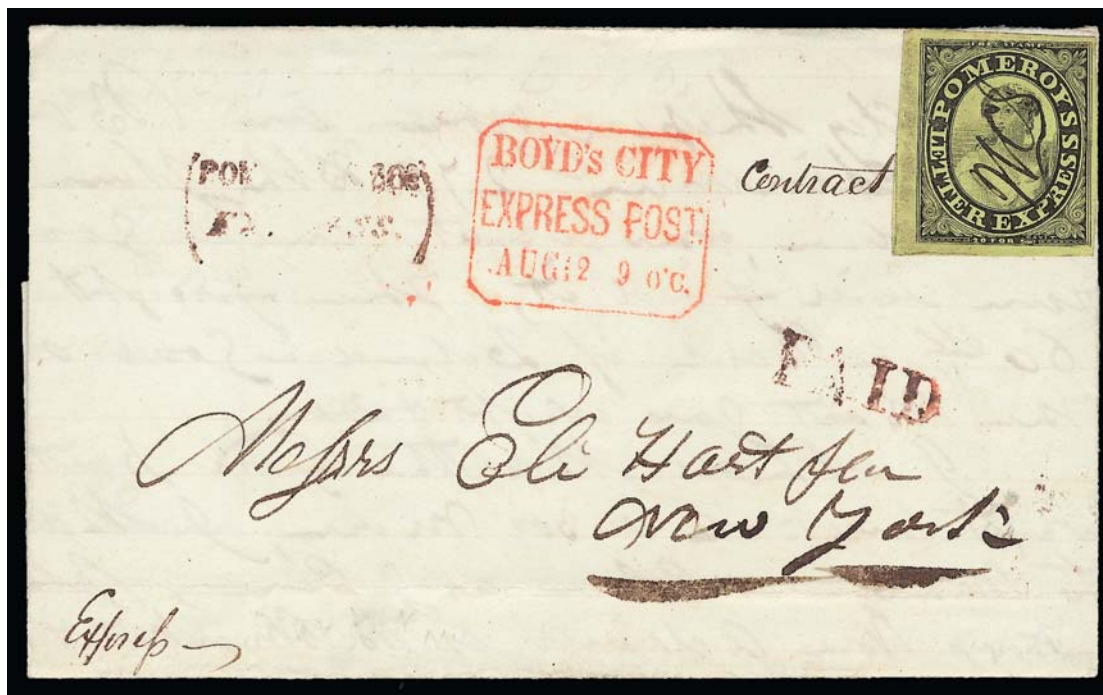 FREE STAMP
POMEROY'S
LETTER EXPRESS.
20 FOR $1
Contract
BOYD's CITY
EXPRESS POST.
AUG 12 9 O'C.
EXPRESS.
PAID
Messrs Eli Hart
New York
Express